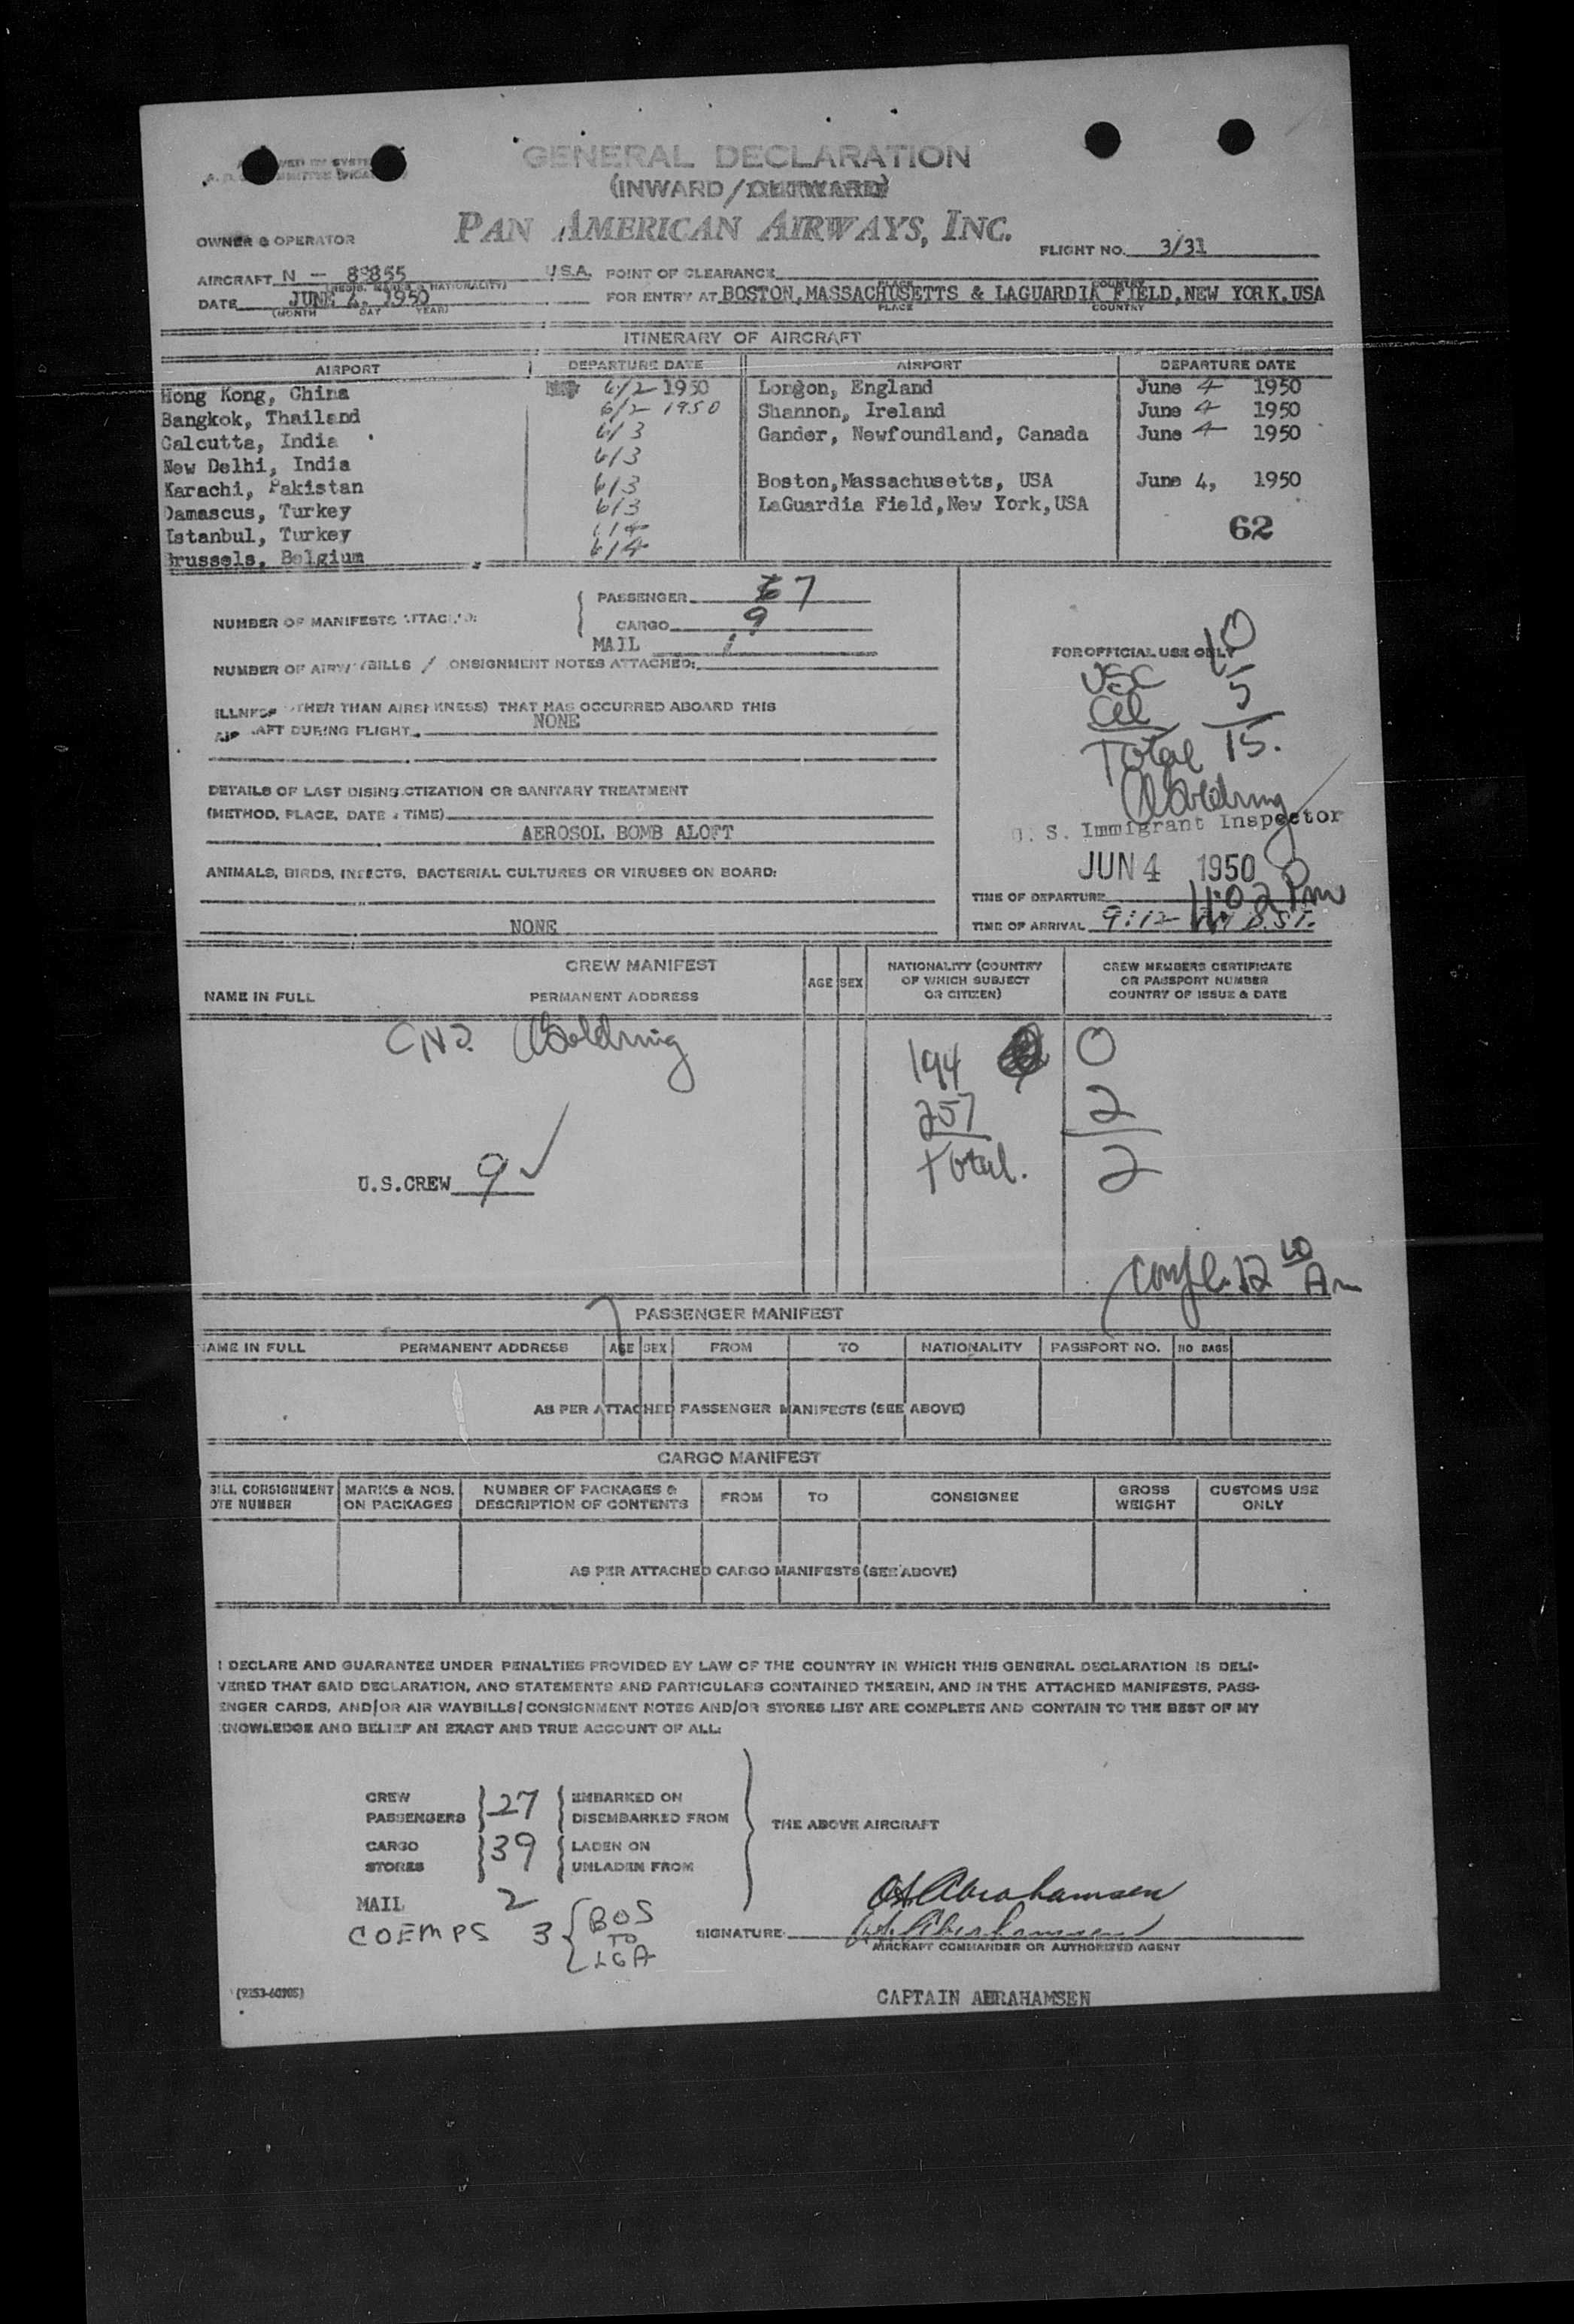 GENERAL DECLARATION
(INWARD/OUTWARD)
PAN AMERICAN AIRWAYS, INC.
OWNER & OPERATOR
FLIGHT NO. 3/31
AIRCRAFT N - 88855 U.S.A. POINT OF CLEARANCE
(REGIS. MARKS & NATIONALITY) PLACE COUNTRY
DATE JUNE 4, 1950 FOR ENTRY AT BOSTON, MASSACHUSETTS & LAGUARDIA FIELD, NEW YORK, USA
(MONTH DAY YEAR) PLACE COUNTRY
ITINERARY OF AIRCRAFT
AIRPORT DEPARTURE DATE AIRPORT DEPARTURE DATE
Hong Kong, China 6/2 1950 London, England June 4 1950
Bangkok, Thailand 6/2 1950 Shannon, Ireland June 4 1950
Calcutta, India 6/3 Gander, Newfoundland, Canada June 4 1950
New Delhi, India 6/3
Karachi, Pakistan 6/3 Boston, Massachusetts, USA June 4, 1950
Damascus, Turkey 6/3 LaGuardia Field, New York, USA
Istanbul, Turkey 6/4
Brussels, Belgium 6/4
62
NUMBER OF MANIFESTS ATTACHED:
PASSENGER 7
CARGO 9
MAIL 1
NUMBER OF AIRWAYBILLS / CONSIGNMENT NOTES ATTACHED:
ILLNESS (OTHER THAN AIRSICKNESS) THAT HAS OCCURRED ABOARD THIS
AIRCRAFT DURING FLIGHT. NONE
DETAILS OF LAST DISINSECTIZATION OR SANITARY TREATMENT
(METHOD, PLACE, DATE & TIME)
AEROSOL BOMB ALOFT
ANIMALS, BIRDS, INSECTS, BACTERIAL CULTURES OR VIRUSES ON BOARD:
NONE
FOR OFFICIAL USE ONLY
USC 10
Al 5
Total 15.
Goldring
U. S. Immigrant Inspector
JUN 4 1950
11:02 Pm
TIME OF DEPARTURE
TIME OF ARRIVAL 9:12 PM D.S.T.
CREW MANIFEST
NAME IN FULL PERMANENT ADDRESS AGE SEX NATIONALITY (COUNTRY OF WHICH SUBJECT OR CITIZEN) CREW MEMBERS CERTIFICATE OR PASSPORT NUMBER COUNTRY OF ISSUE & DATE
Goldring
194 0
257 2
Total. 2
U.S.CREW 9
12 10 Am
PASSENGER MANIFEST
NAME IN FULL PERMANENT ADDRESS AGE SEX FROM TO NATIONALITY PASSPORT NO. NO BAGS
AS PER ATTACHED PASSENGER MANIFESTS (SEE ABOVE)
CARGO MANIFEST
BILL CONSIGNMENT OTE NUMBER MARKS & NOS. ON PACKAGES NUMBER OF PACKAGES & DESCRIPTION OF CONTENTS FROM TO CONSIGNEE GROSS WEIGHT CUSTOMS USE ONLY
AS PER ATTACHED CARGO MANIFESTS (SEE ABOVE)
I DECLARE AND GUARANTEE UNDER PENALTIES PROVIDED BY LAW OF THE COUNTRY IN WHICH THIS GENERAL DECLARATION IS DELI-
VERED THAT SAID DECLARATION, AND STATEMENTS AND PARTICULARS CONTAINED THEREIN, AND IN THE ATTACHED MANIFESTS, PASS-
ENGER CARDS, AND/OR AIR WAYBILLS/CONSIGNMENT NOTES AND/OR STORES LIST ARE COMPLETE AND CONTAIN TO THE BEST OF MY
KNOWLEDGE AND BELIEF AN EXACT AND TRUE ACCOUNT OF ALL:
CREW
PASSENGERS 27 EMBARKED ON
DISEMBARKED FROM
THE ABOVE AIRCRAFT
CARGO
STORES 39 LADEN ON
UNLADEN FROM
MAIL 2
COEMPS 3 BOS TO LGA
SIGNATURE
AIRCRAFT COMMANDER OR AUTHORIZED AGENT
CAPTAIN ABRAHAMSEN